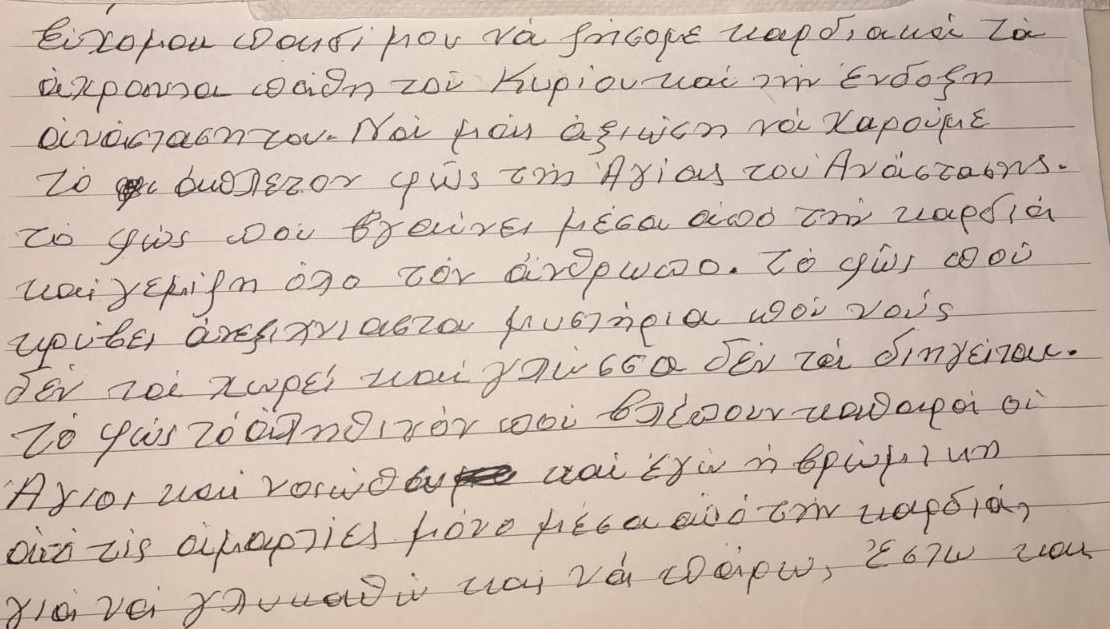 Εὔχομαι παιδί μου νά ζήσομε καρδιακά τά
ἄχραντα πάθη τοῦ Κυρίου καί τήν ἔνδοξη
ἀνάστασή του. Νά μᾶς ἀξιώση νά χαροῦμε
τό ἄπλετον φῶς τῆς Ἁγίας του Ἀνάστασης.
τό φῶς πού βγαίνει μέσα ἀπό τήν καρδιά
καί γεμίζη ὅλο τόν ἄνθρωπο. τό φῶς πού
κρύβει ἀνεξιχνίαστα μυστήρια πού νοῦς
δέν τά χωρεί καί γλώσσα δέν τά διηγεῖται.
Τό φῶς τό ἀληθινόν πού βλέπουν καθαρά οἱ
Ἅγιοι, καί νοιώθω καί ἐγώ ἡ βρώμικη
ἀπό τίς ἁμαρτίες μόνο μέσα ἀπό τήν καρδιά,
γιά νά γλυκαθῶ καί νά πάρω, ἔστω και